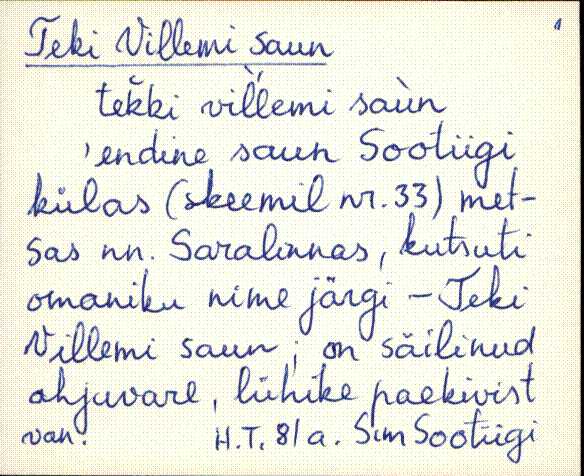 1
Teki Villemi saun
tekki villemi saùn
'endine saun Sootiigi
külas (skeemil nr. 33) met-
sas nn. Saralinnas, kutsuti
omaniku nime järgi – Teki
Villemi saun; on säilinud
ahjuvare, lühike paekivist
van. H.T. 81a. Sim Sootiigi